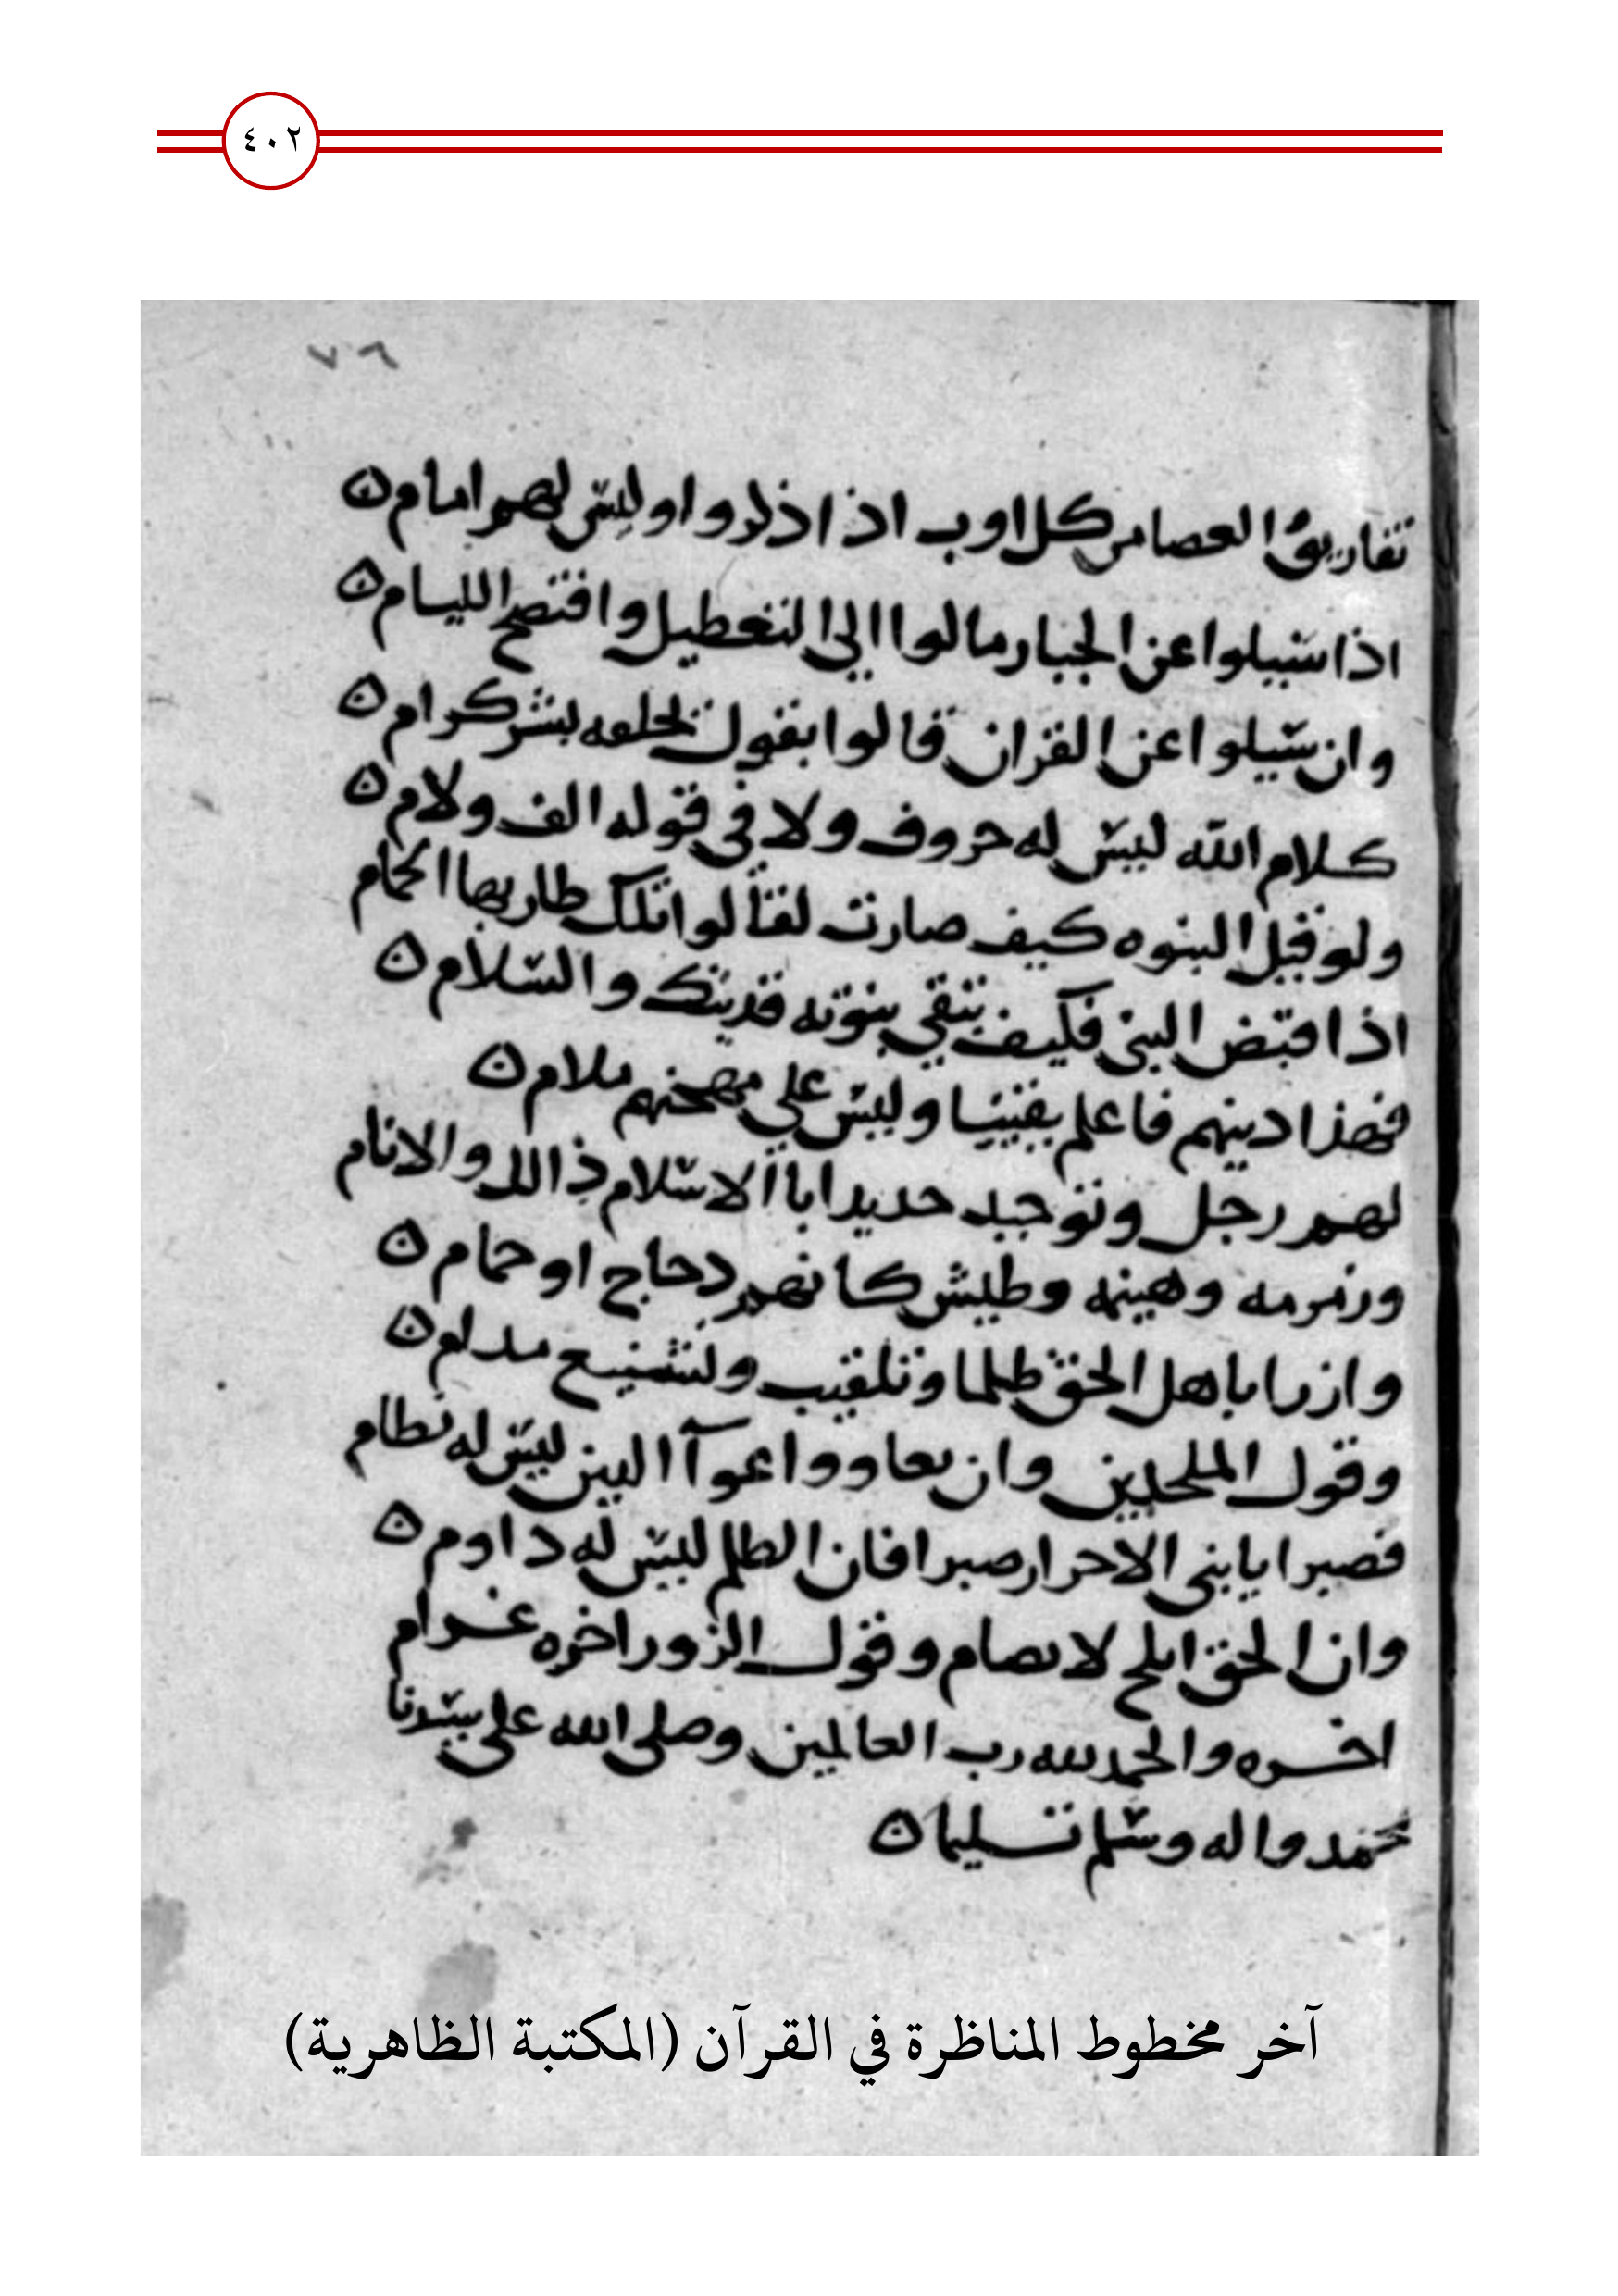 ٤٠٢
٧٦
تفاريق العصا من كل اوب اذا ذكروا وليس لهم امام
اذا سيلوا عن الجبار مالوا الى التعطيل وافتضح الليام
وان سيلوا عن القران قالوا بقول بخلقه بشر كرام
كلام الله ليس له حروف ولا في قوله الف ولام
ولو قيل النبوه كيف صارت لقالوا تلك طار بها الحمام
اذا قبض النبي فكيف تبقى نبوته فديتك والسلام
فهذا دينهم فاعلم يقينيا وليس على مهجنهم ملام
لهم رجل وتوجيد حديد ابا الاسلام ذالك والانام
وزمزمه وهينمه وطيش كانهم دجاج او حمام
وازرا باهل الحق ظلما وتلقيب وتشنيع مدام
وقول الملحدين وان تعاووا عوآ البين ليس له نظام
فصبرا يا بني الاحرار صبرا فان الظلم ليس له داوم
وان الحق ابلج لا يضام وقول الزور اخره غرام
اخره والحمد لله رب العالمين وصلى الله على سيدنا
محمد واله وسلم تسليما
آخر مخطوط المناظرة في القرآن (المكتبة الظاهرية)